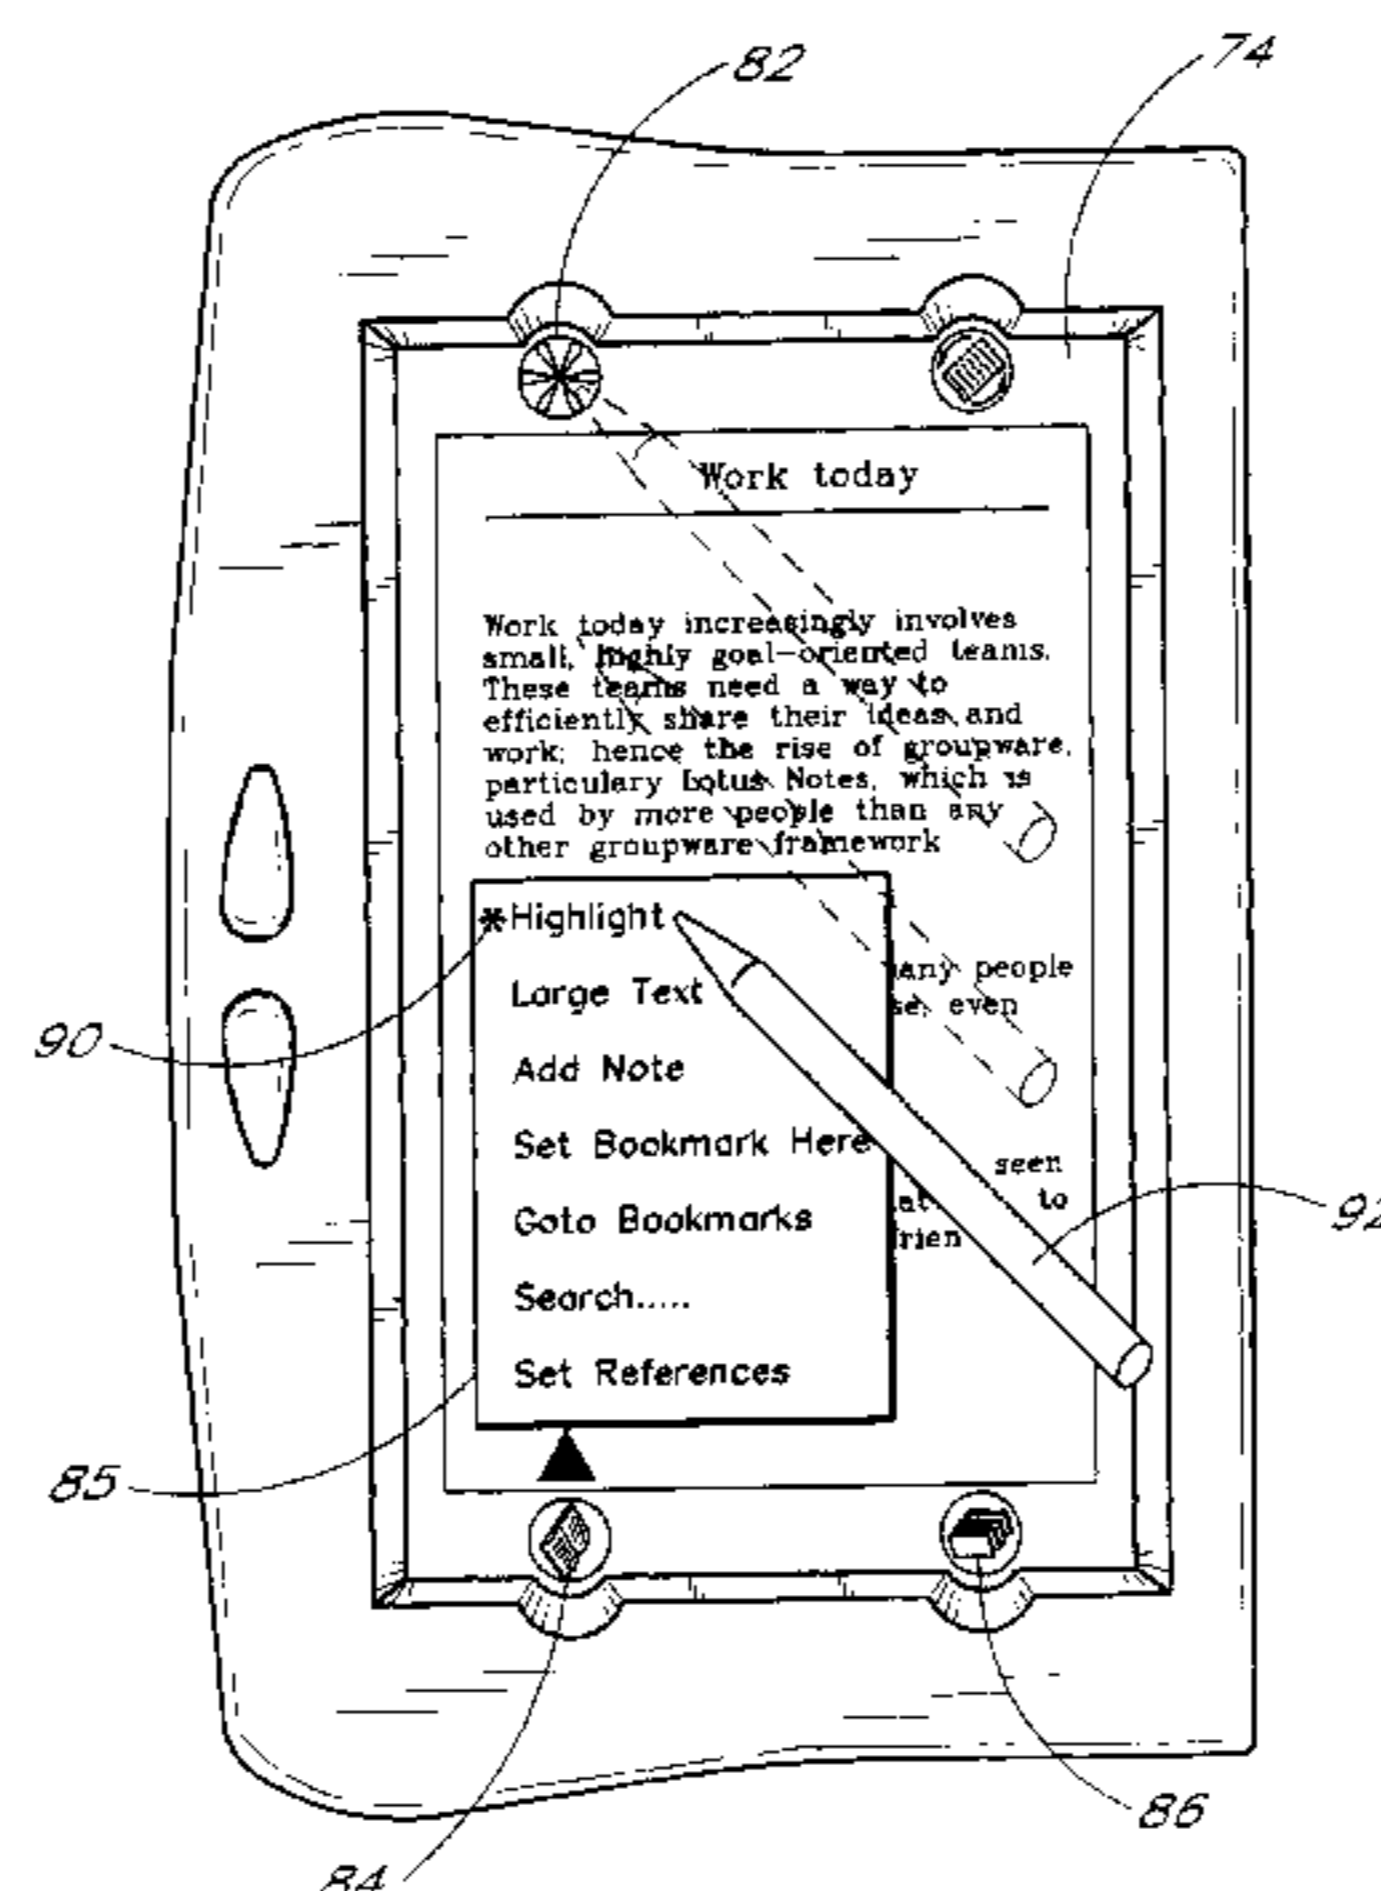 82
74
Work today
Work today increasingly involves
small, highly goal-oriented teams.
These teams need a way to
efficiently share their ideas and
work; hence the rise of groupware,
particulary Lotus Notes, which is
used by more people than any
other groupware framework
*Highlight
any people
Large Text
se, even
90
Add Note
Set Bookmark Here
seen
92
at to
Goto Bookmarks
rien
Search.....
Set References
85
86
84